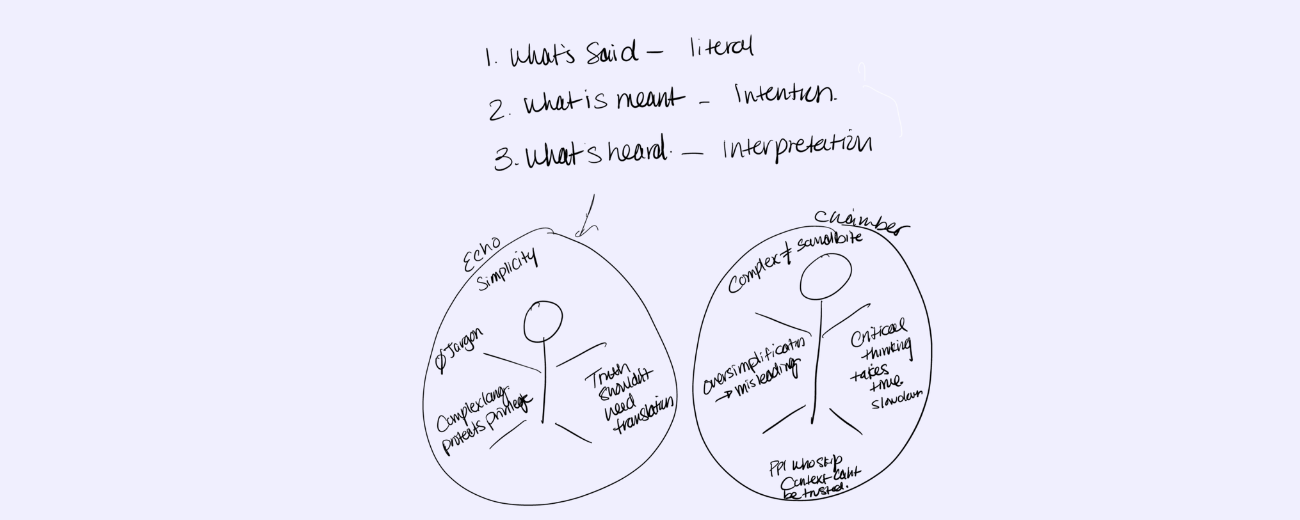 1. What's Said – literal
2. What is meant – Intention.
3. What's heard. – Interpretation
Echo
Simplicity
Ø Jargon
Complex lang.
protects privilege
Truth
shouldn't
need
translation
Chamber
Complex ≠ soundbite
oversimplification
→ misleading
Critical
thinking
takes
time.
slow down
PPl who skip
Context can't
be trusted.